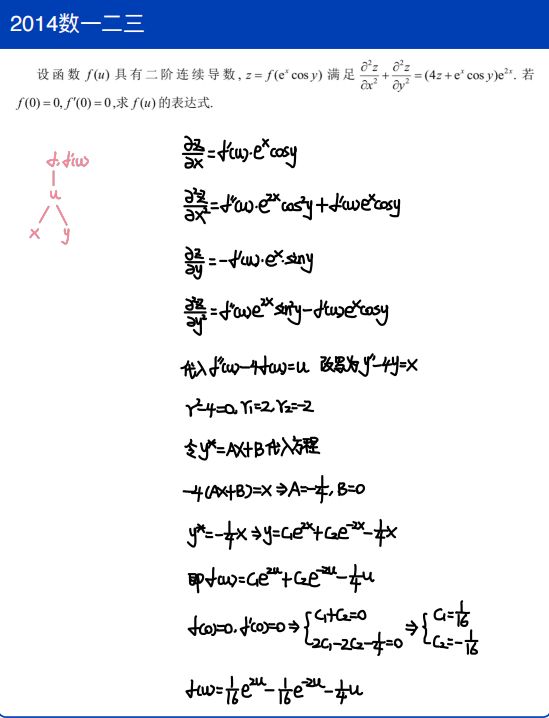 2014数一二三
设函数 f(u) 具有二阶连续导数, z = f(eˣ cos y) 满足 ∂²z/∂x² + ∂²z/∂y² = (4z + eˣ cos y)e²ˣ. 若
f(0) = 0, f′(0) = 0 ,求 f(u) 的表达式.
∂z/∂x = f′(u)·eˣcosy
f, f′(u)
u
x y
∂²z/∂x² = f″(u)·e²ˣcos²y + f′(u)eˣcosy
∂z/∂y = -f′(u)·eˣ·siny
∂²z/∂y² = f″(u)e²ˣsin²y - f′(u)eˣcosy
代入 f″(u) - 4f(u) = u 改写为 y″ - 4y = x
r² - 4 = 0, r₁ = 2, r₂ = -2
令 y* = Ax + B 代入方程
-4(Ax + B) = x ⇒ A = -1/4, B = 0
y* = -1/4x ⇒ y = C₁e²ˣ + C₂e⁻²ˣ - 1/4x
即 f(u) = C₁e²ᵘ + C₂e⁻²ᵘ - 1/4u
f(0) = 0, f′(0) = 0 ⇒ { C₁ + C₂ = 0, 2C₁ - 2C₂ - 1/4 = 0 ⇒ { C₁ = 1/16, C₂ = -1/16
f(u) = 1/16e²ᵘ - 1/16e⁻²ᵘ - 1/4u